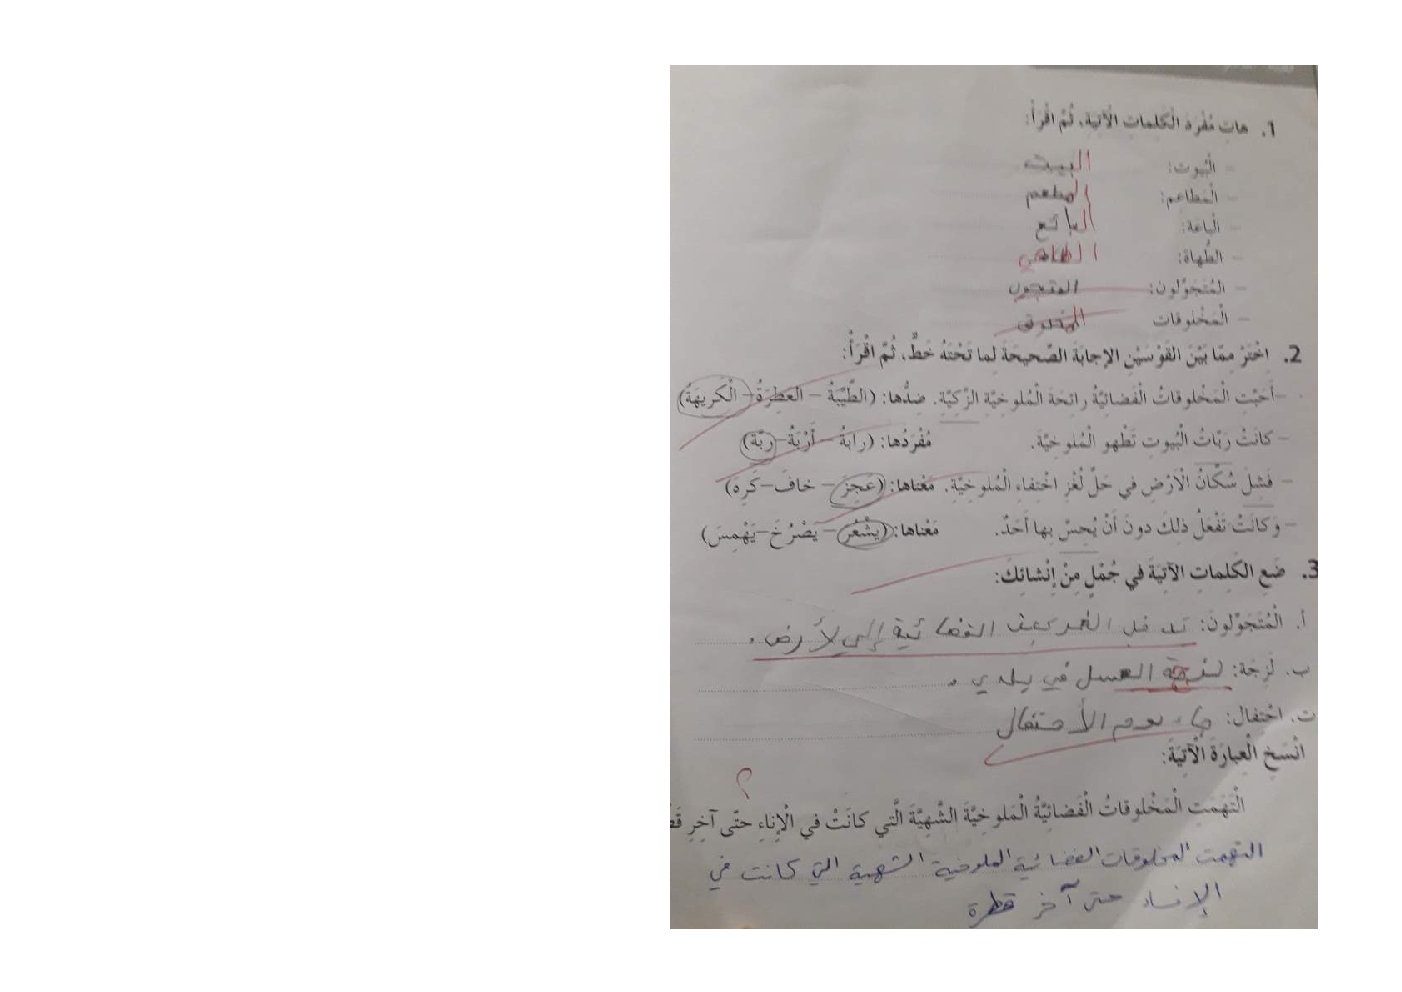 1. هاتِ مُفْرَدَ الْكَلِماتِ الْآتِيَةِ، ثُمَّ اقْرَأْ:
- الْبُيوت: البيت
- الْمَطاعم: المطعم
- الْباعَة: البائع
- الطُّهاة: الطاهي
- المُتَجَوِّلون: المتجول
- الْمَخْلوقات المخلوق
2. اخْتَرْ مِمّا بَيْنَ القَوْسَيْنِ الإجابَةَ الصَّحيحَةَ لِما تَحْتَهُ خَطٌّ، ثُمَّ اقْرَأْ:
- أَحَبَّتِ الْمَخْلوقاتُ الْفَضائِيَّةُ رائِحَةَ الْمُلوخِيَّةِ الزَّكِيَّةِ. ضِدُّها: (الطَّيِّبَةُ – العَطِرَةُ – الْكَريهَةُ)
- كانَتْ رَبّاتُ الْبُيوتِ تَطْهو الْمُلوخِيَّةَ. مُفْرَدُها: (رابَةُ – أَرْبَةُ – رَبَّة)
- فَشِلَ سُكّانُ الْأَرْضِ في حَلِّ لُغْزِ اخْتِفاءِ الْمُلوخِيَّةِ. مَعْناها: (عَجِزَ – خافَ – كَرِه)
- وَكانَتْ تَفْعَلُ ذلِكَ دونَ أَنْ يُحِسَّ بِها أَحَدٌ. مَعْناها: (يَشْعُرَ – يَصْرُخَ – يَهْمِسَ)
3. ضَعِ الكَلِماتِ الآتِيَةَ في جُمَلٍ مِنْ إِنْشائِكَ:
أ. الْمُتَجَوِّلونَ: الفضائية إلى لأرض.
ب. لَزِجَة: لزجة العسل في يدي.
ت. احْتِفال: جاء يوم الأحتفال
انْسَخِ الْعِبارَةَ الْآتِيَةَ:
؟
الْتَهَمَتِ الْمَخْلوقاتُ الْفَضائِيَّةُ الْمَلوخِيَّةَ الشَّهِيَّةَ الَّتي كانَتْ في الْإِناءِ حَتّى آخِرِ
التهمت المخلوقات الفضائية الملوخية الشهية التي كانت في
الإناء حتى آخر قطرة